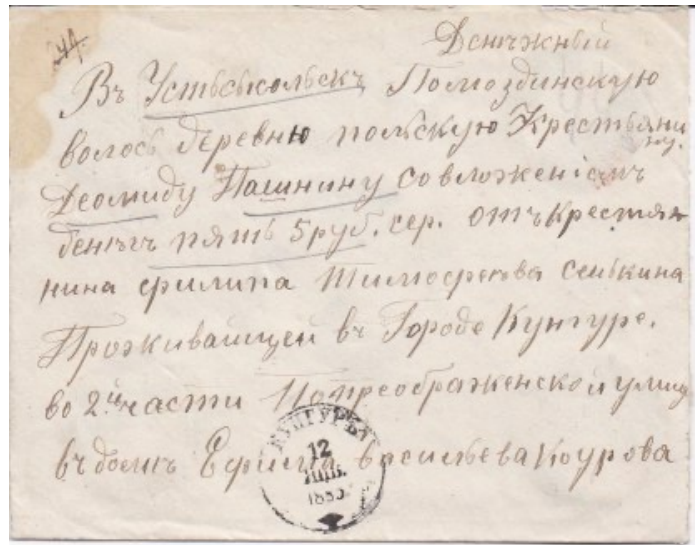 Денежный
Въ Устьсысольскъ Помоздинскую
волось деревню полскую Крестьяни
ну.
Деомиду Пашнину со вложеніемъ
денегъ пять 5 руб. сер. отъ Крестян
нина Филипа Тимофеева Сенкина
Проживающей въ Городе Кунгуре.
во 2й части Попреображенской улице
въ доме Ефима васильева Коурова
КУНГУРЪ
12